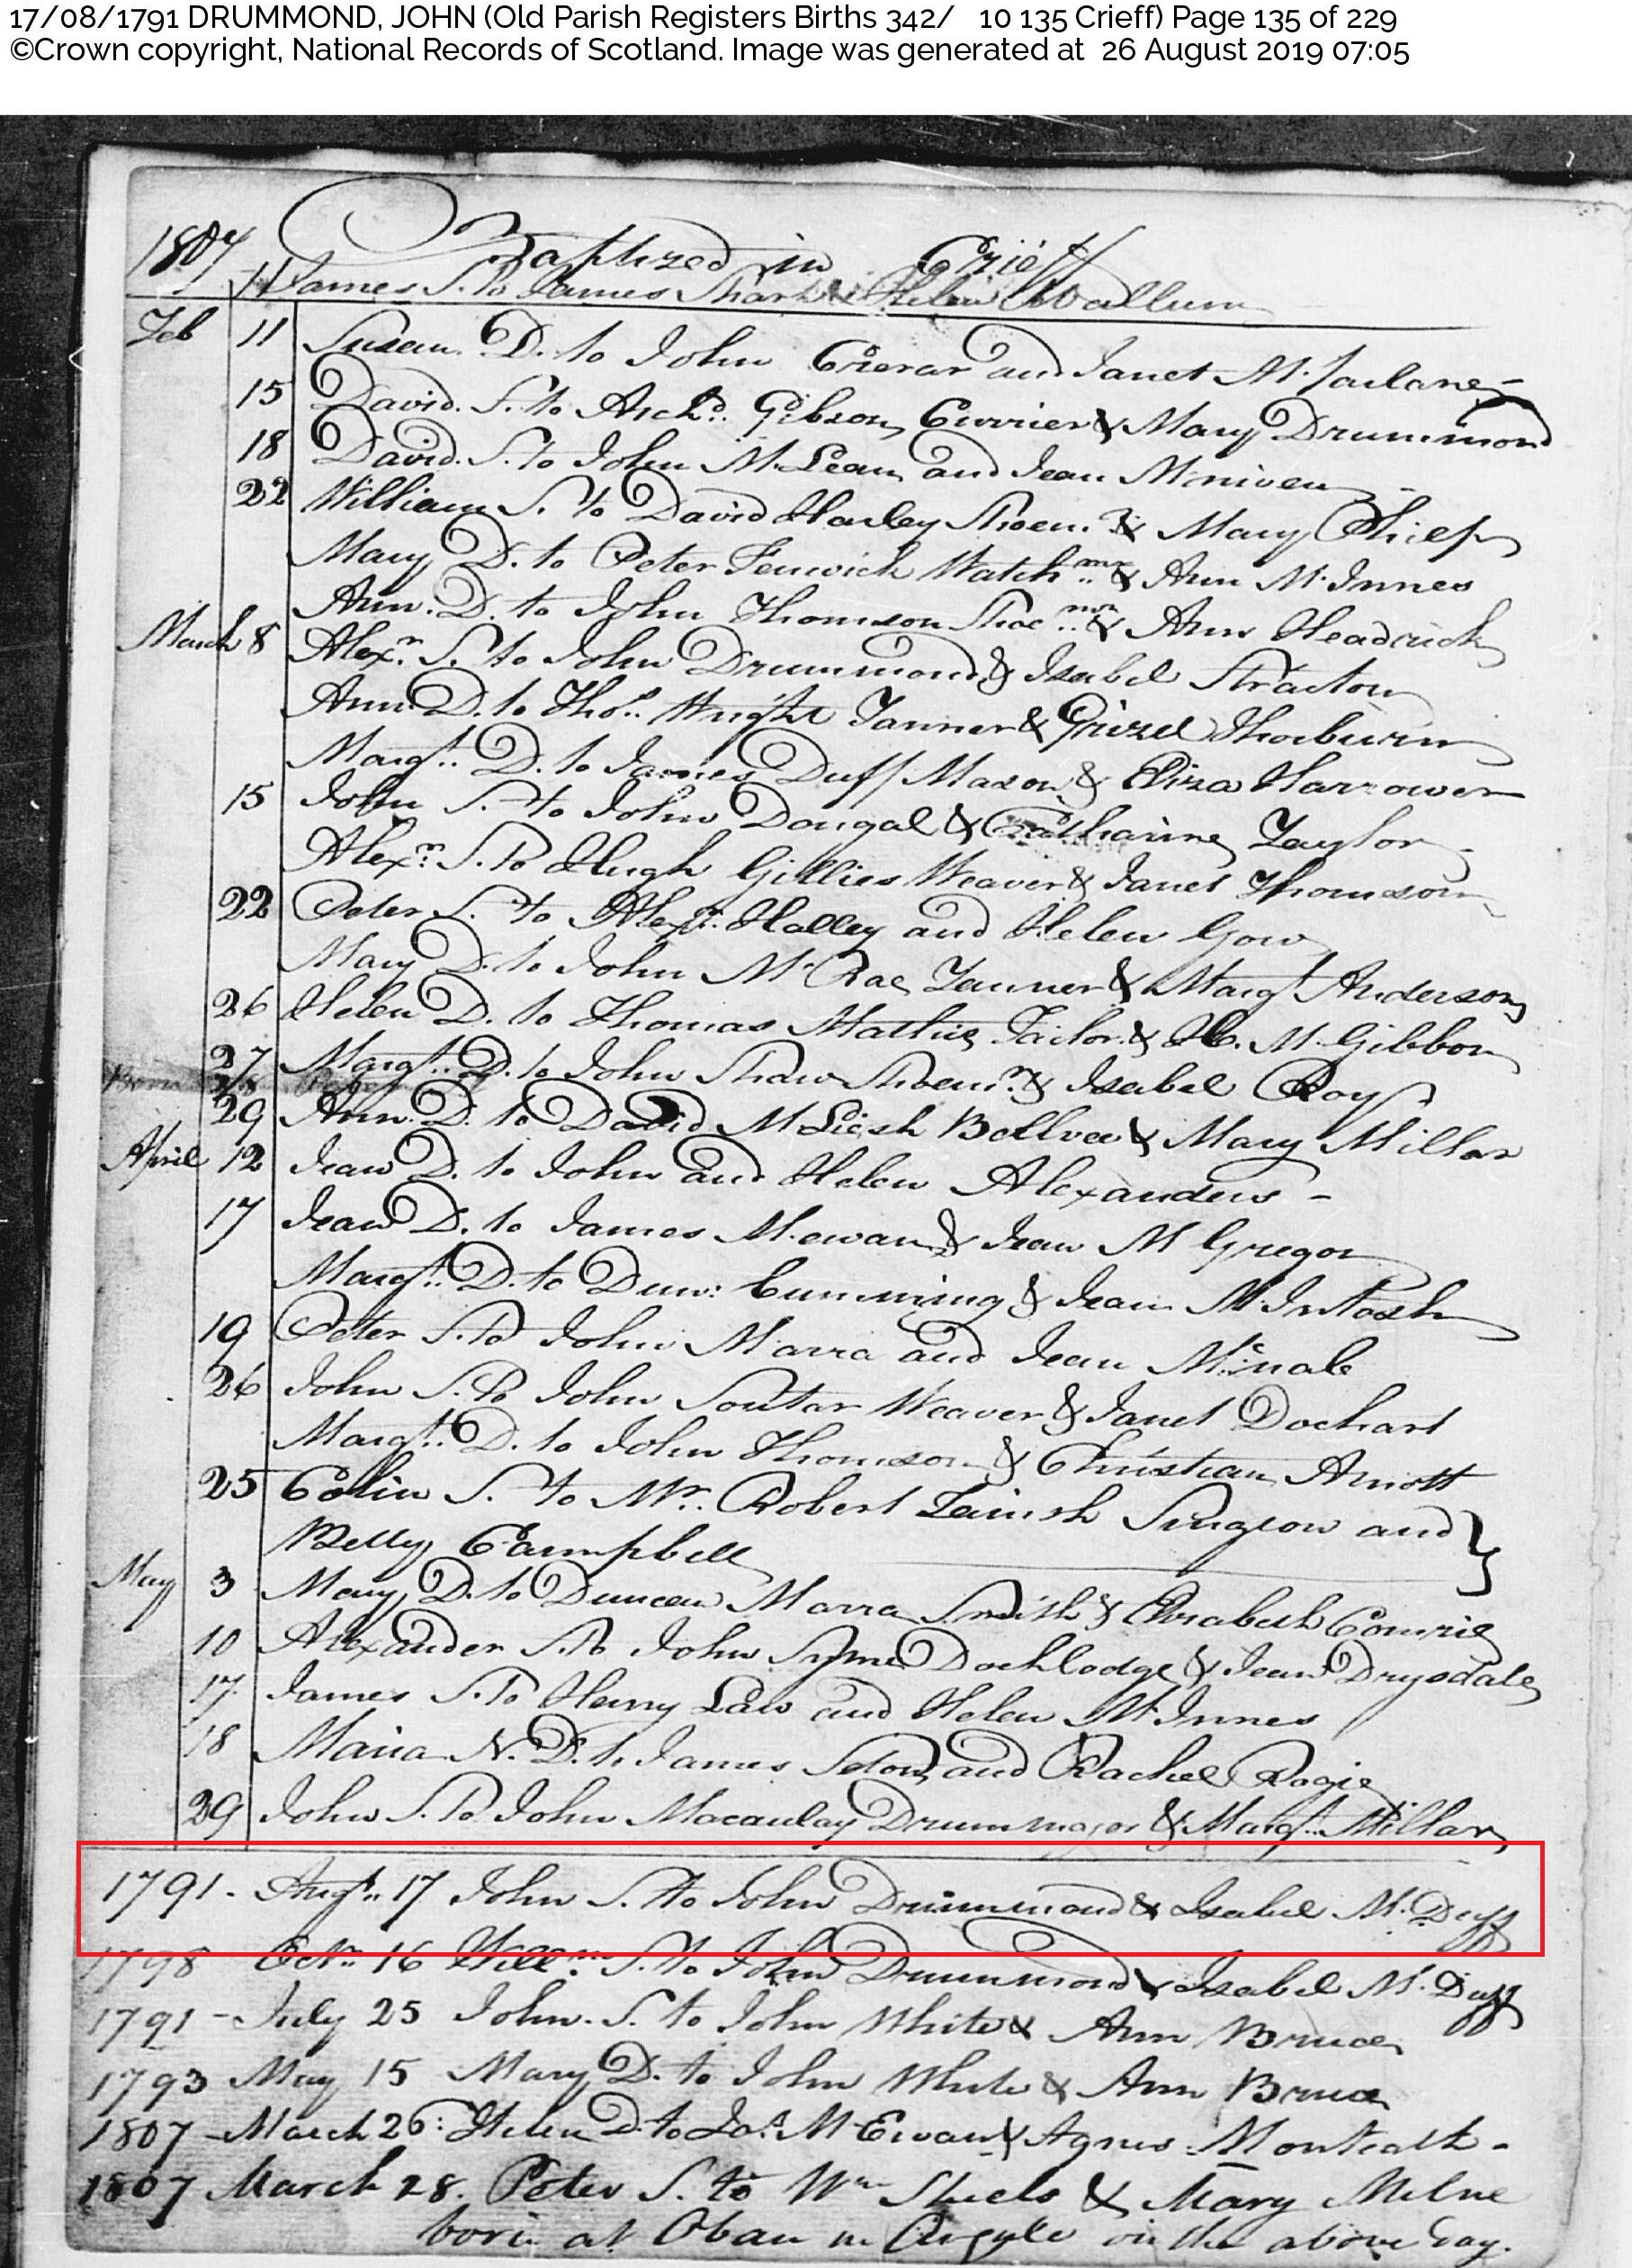 17/08/1791 DRUMMOND, JOHN (Old Parish Registers Births 342/ 10 135 Crieff) Page 135 of 229
©Crown copyright, National Records of Scotland. Image was generated at 26 August 2019 07:05
1807 Baptized in Crieff
James S. to James Shark & Helen
Feb 11 Susan D. to John Crerar and Janet Mcfarlane
15 David S. to Archd. Gibson Currier & Mary Drummond
18 David S. to John McLean and Jean Mcniven
22 William S. to David Harley Shoemr. & Mary Philip
Mary D. to Peter Fenwick Watchmr. & Ann McInnes
Ann D. to John Thomson Shoemr. & Ann Headrick
March 8 Alexr. S. to John Drummond & Isabel Stracton
Ann D. to Thos. Wright Tanner & Grizel Thorburn
Margt. D. to James Duff Mason & Eliza Harrower
15 John S. to John Dougal & Catharine Taylor
Alexr. S. to Hugh Gillies Weaver & Janet Thomson
22 Peter S. to Alexr. Halley and Helen Gow
Mary D. to John McRae Tanner & Margt. Anderson
26 Helen D. to Thomas Mathie Tailor & H. McGibbon
27 Margt. D. to John Shaw Shoemr. & Isabel Roy
29 Ann D. to David McLiesh & Mary Millar
April 12 Jean D. to John and Helen Alexanders
17 Jean D. to James Mcewan & Jean McGregor
Margt. D. to Dun: Cumming & Jean McIntosh
19 Peter S. to John Marra and Jean Mcnab
26 John S. to John Soutar Weaver & Janet Dochart
Margt. D. to John Thomson & Christian Arnott
25 Colin S. to Mr. Robert Tainsh Surgeon and
Betty Campbell
May 3 Mary D. to Duncan Marra Smith & Elizabeth Comrie
10 Alexander S. to John Syme Dochlodge & Jean Drysdale
17 James S. to Henry Law and Helen McInnes
18 Maria N. D. to James Seton and Rachel Rogie
29 John S. to John Macaulay Drummajor & Margt. Millar
1791 - Augt. 17 John S. to John Drummond & Isabel Mc.Duff
1798 Octr. 16 Willm. S. to John Drummond & Isabel Mc.Duff
1791 - July 25 John S. to John White & Ann Bruce
1793 May 15 Mary D. to John White & Ann Bruce
1807 - March 26: Helen D. to Jas. McEwan & Agnes Monteath -
1807 March 28. Peter S. to Wm Shiels & Mary Milne
born at Oban in Argyle on the above day.